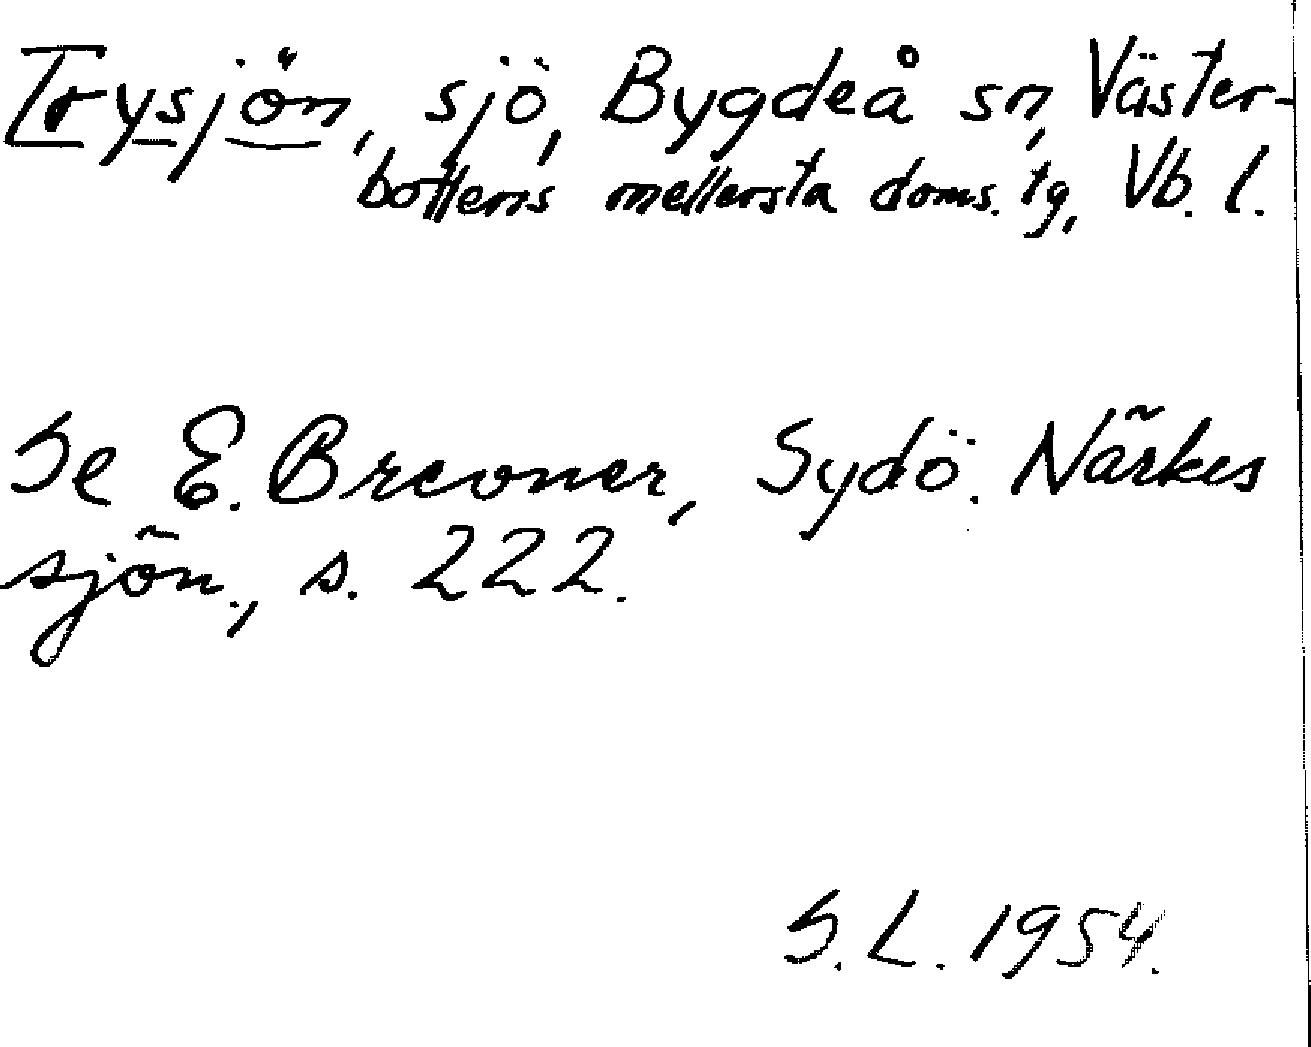 Trysjön, sjö, Bygdeå sn, Väster-
bottens mellersta doms. tg, Vb. l.
Se E. Brevner, Sydö. Närkes
sjön., s. 222.
S. L. 1954.